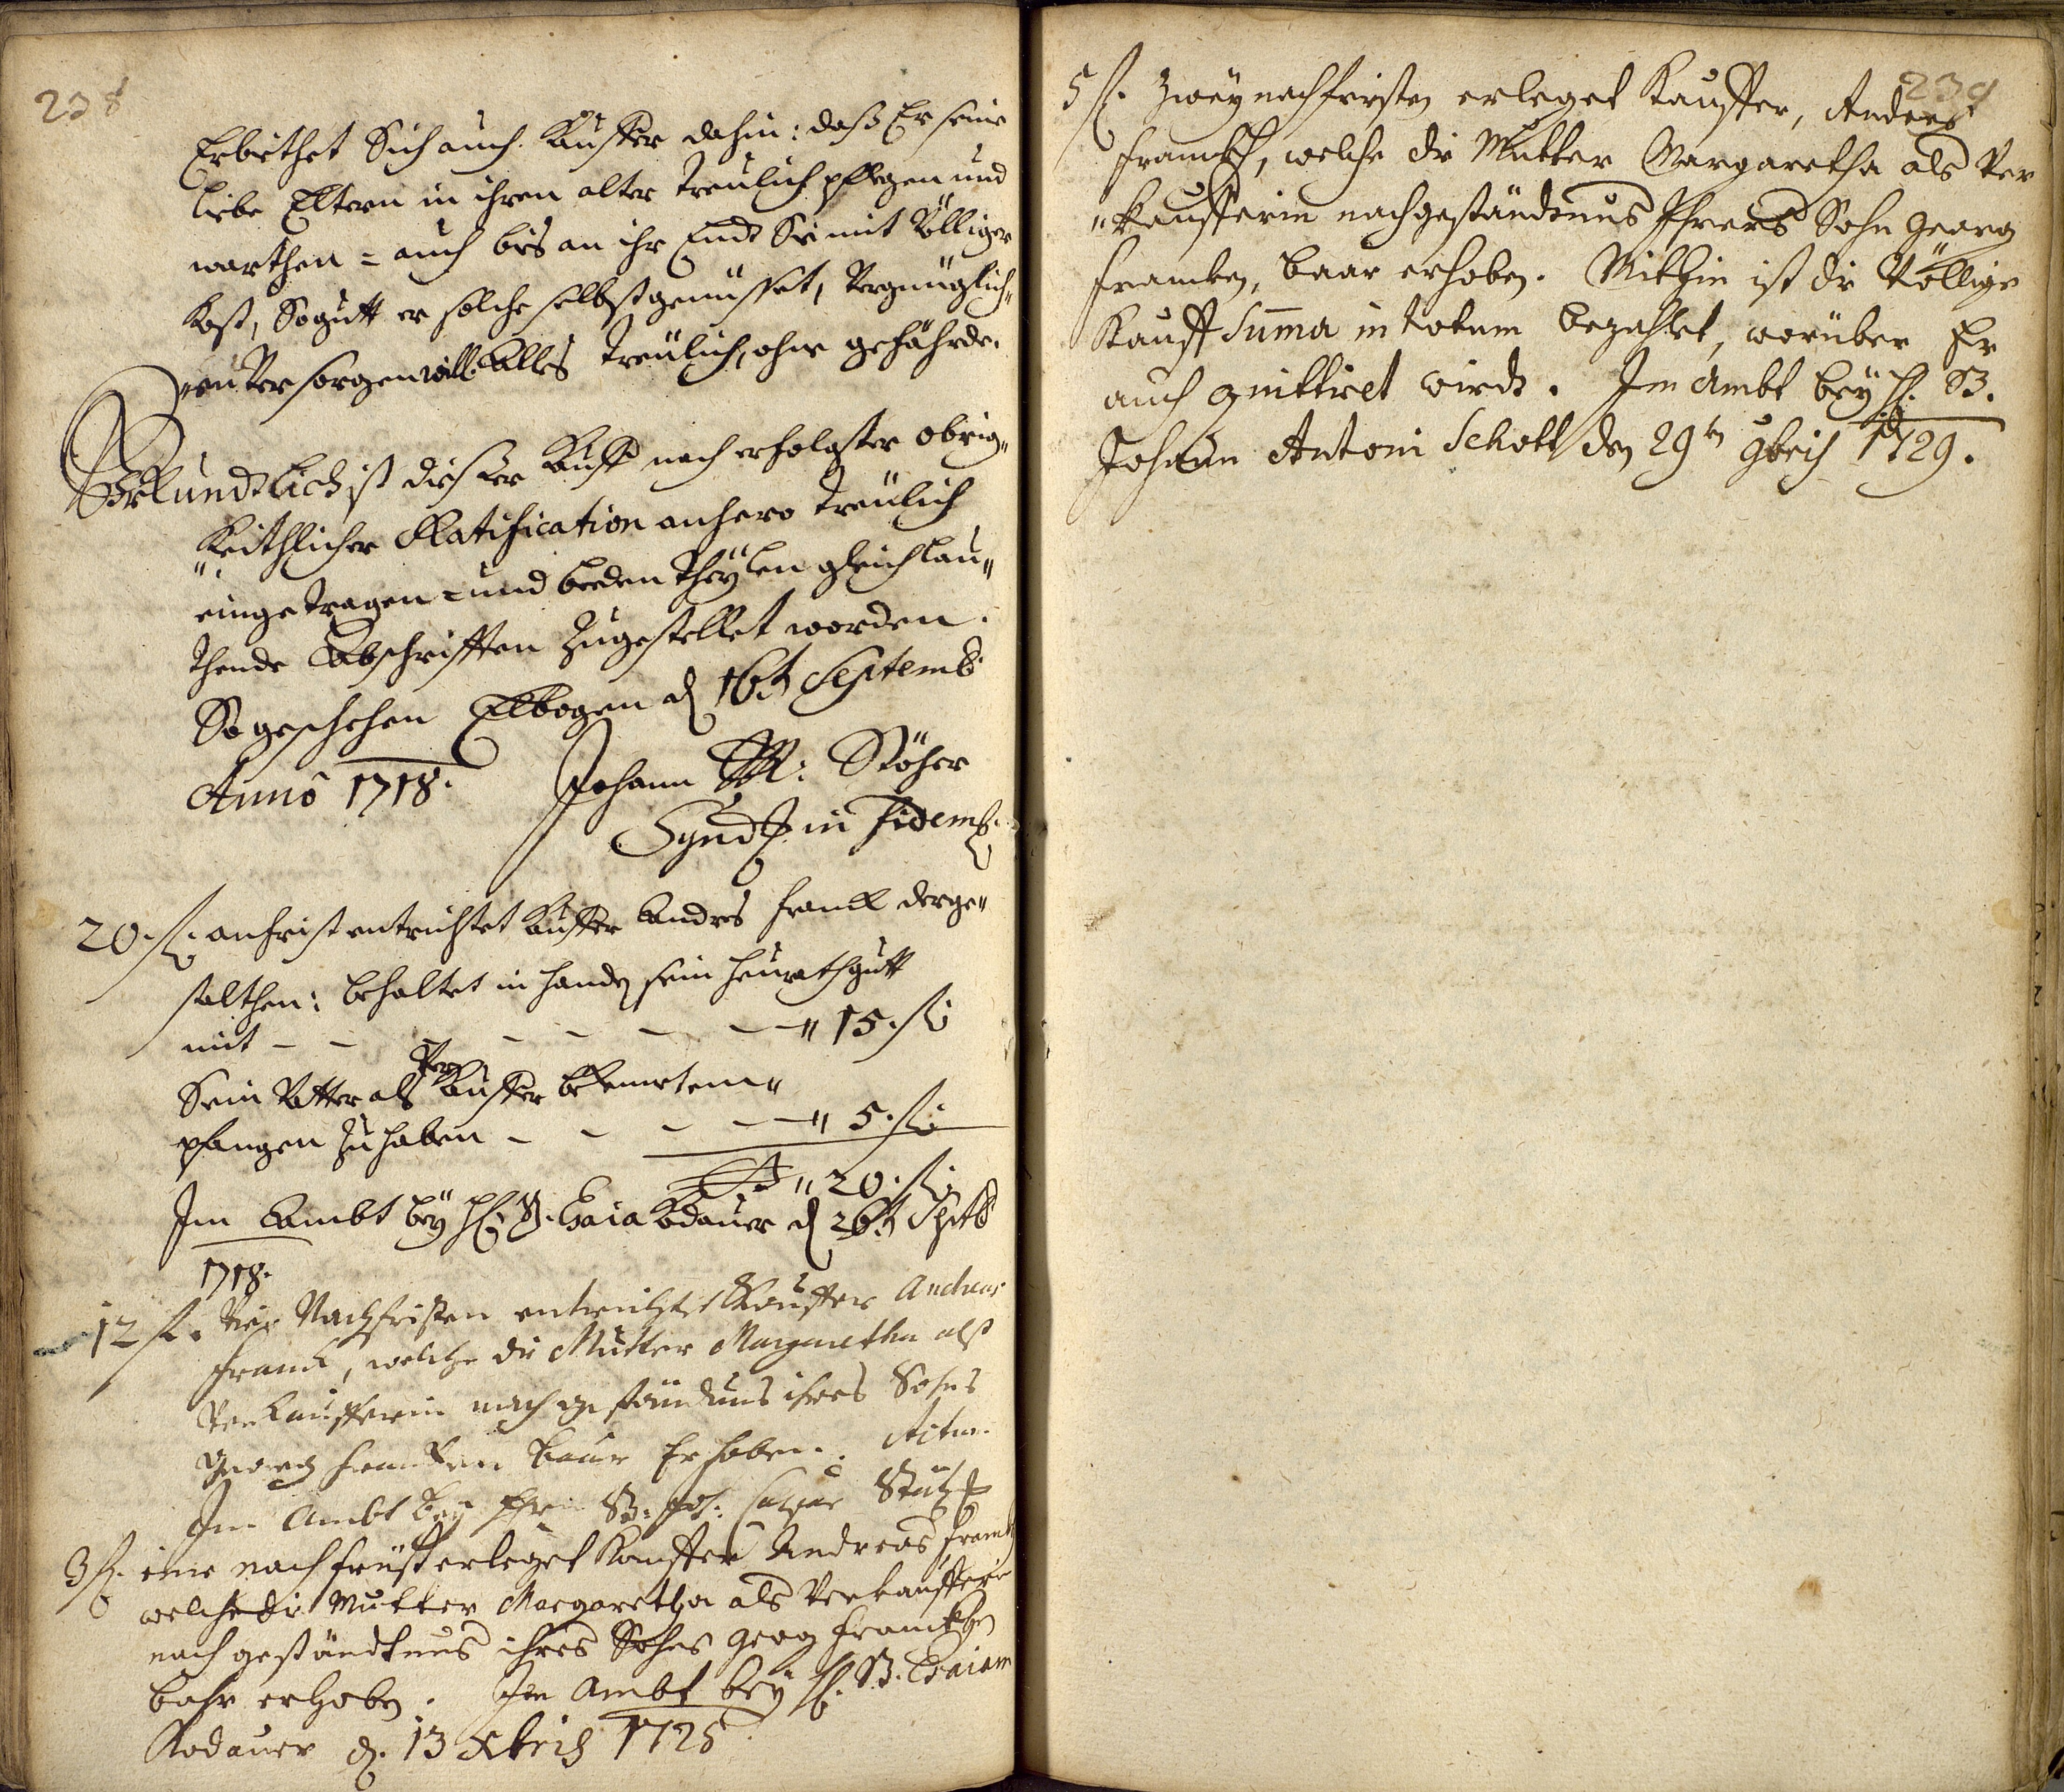 238
Erbiethet Sich auch Kuffer dahin: daß Er seine
liebe Eltern in ihren alter treulich pflegen und
warthen = auch bis an ihr Ende Sie mit Völliger
Kost, So gutt er solche selbst genüsset, Vergnüglich„
„en Versorgen will. Alles treülich, ohne gefährde.
Uhrkundtlich ist dießer Kuff nach erfolgter obrig„
„keithlicher Ratification anhero treülich
eingetragen = und beeden Theÿlen gleichlau„
thende Abschrifften zugestellet worden.
So geschehen Elbogen d 16t Septemb
Anno 1718. Johann Stöher
Synd in fidem
20. f. anfrist entrichtet Kuffer Andres Franck derge„
stalthen: behaltet in handen sein heurathgutt
mit - - - - - - - „ 15. f
Sein Vatter als Ver Kuffer bekennet em„
pfangen zu haben - - - - „ 5. f
„ 20. f.
Im Ambt beÿ H. B. Esaia Kodauer d 26t Septb
1718.
12 f. Vier Nachfristen entrichtet Kauffer Andreas
Franck, welche die Mutter Margaretha alß
Verkaufferin nach geständnus ihres Sohns
Georg Francken baar Erhoben. Actum
Im Ambt beÿ Hrn B. Joh. Caspar
3 f. eine nachfrist erleget Kauffer Andreas Franck
welche die Mutter Margaretha als Verkaufferin
nach geständtnus ihres Sohns Georg Francken
bahr erhoben. Im Ambt beÿ H. B. Esaiam
Kodauer d. 13 Xbris 1725
239
5 f. Zweÿ nachfristen erleget Kauffer, Andreas
Franckh, welche die Mutter Margaretha als Ver
„kaufferin nach geständtnus Ihres Sohn Georg
Francken, baar erhoben. Mithin ist die Völlige
Kauff Suma in totum bezahlet, worüber Er
auch quittiret wirdt. Im Ambt beÿ H. B.
Johann Antoni Schott den 29ten 9bris 1729.